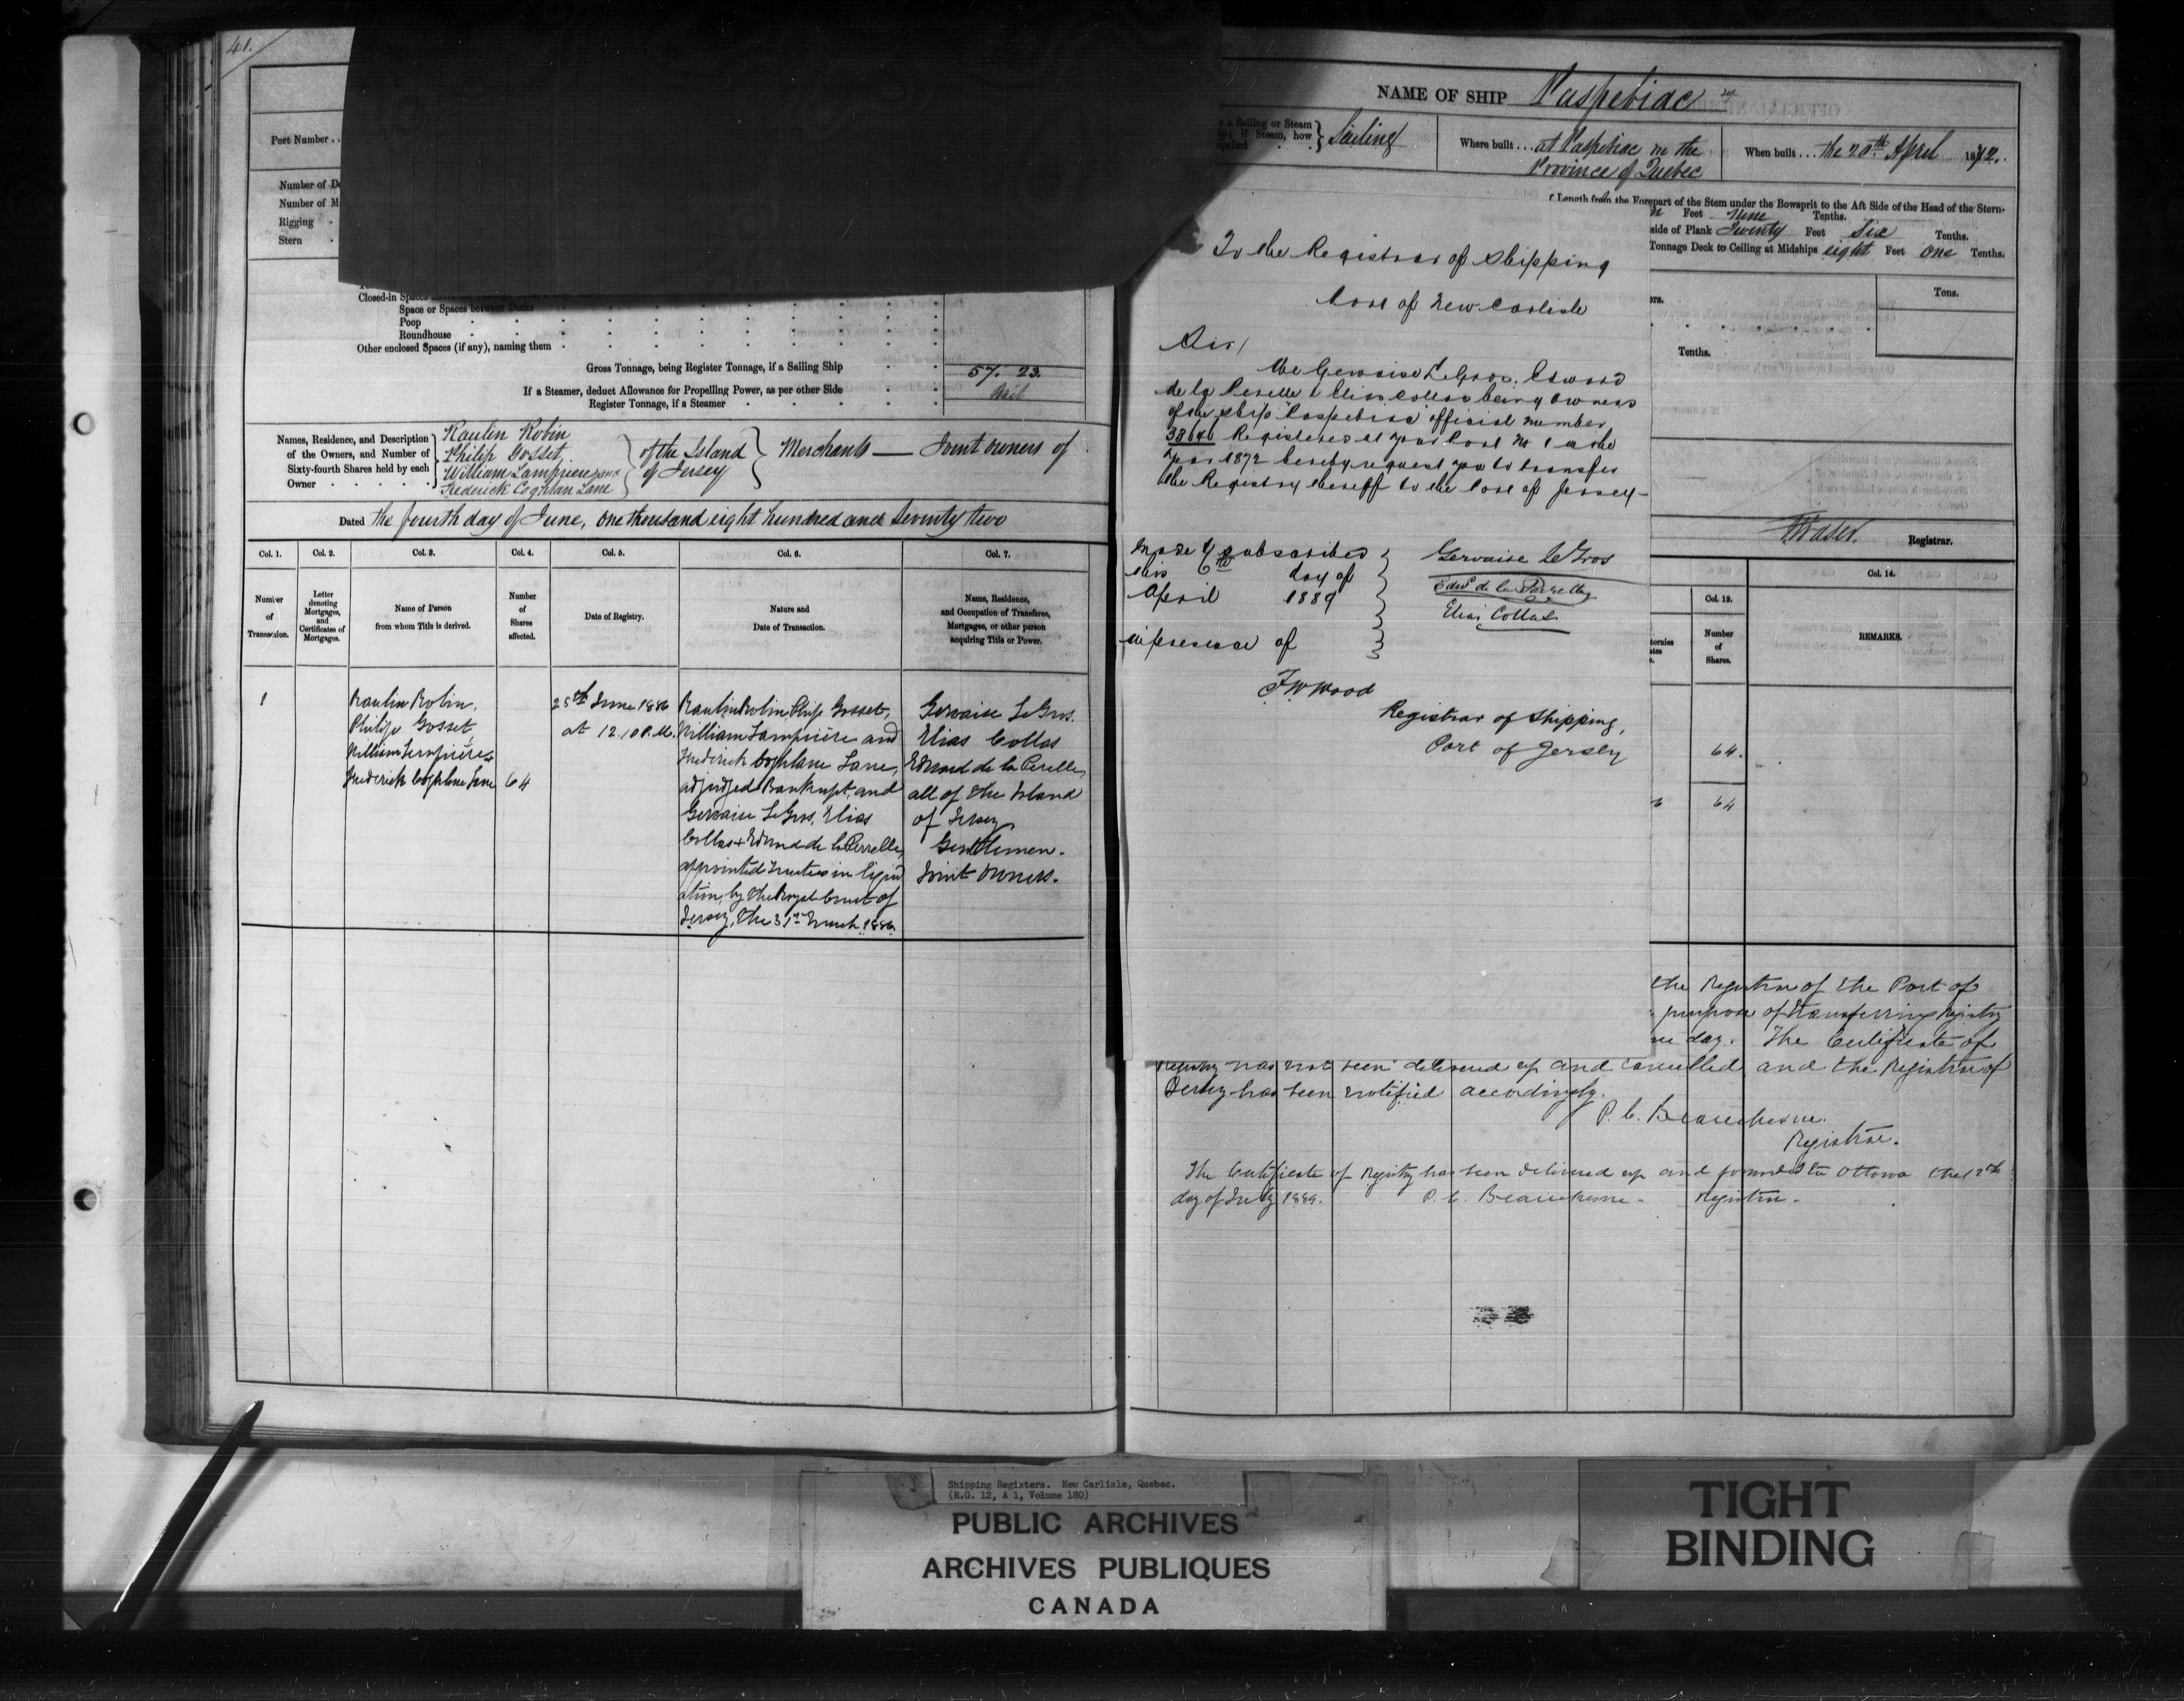 41.
Port Number . .
Number of De
Number of M
Rigging
Stern
Closed-in Spaces
Space or Spaces between Decks
Poop
Roundhouse
Other enclosed Spaces (if any), naming them
Gross Tonnage, being Register Tonnage, if a Sailing Ship 57. 23.
If a Steamer, deduct Allowance for Propelling Power, as per other Side
Register Tonnage, if a Steamer
Names, Residence, and Description of the Owners, and Number of Sixty-fourth Shares held by each Owner
Raulin Robin
Philip Gosset
William Lempriere and
Frederick Coghlan Lane
of the Island of Jersey
Merchants — Joint owners of
Dated the fourth day of June, one thousand eight hundred and seventy two
Col. 1. Col. 2. Col. 3. Col. 4. Col. 5. Col. 6. Col. 7.
Number of Transaction.
Letter denoting Mortgages, and Certificates of Mortgages.
Name of Person from whom Title is derived.
Number of Shares affected.
Date of Registry.
Nature and Date of Transaction.
Name, Residence, and Occupation of Transferee, Mortgagee, or other person acquiring Title or Power.
1
Raulin Robin,
Philip Gosset,
William Lempriere &
Frederick Coghlan Lane
64
25th June 1886
at 12.10 P.M.
Raulin Robin, Philip Gosset,
William Lempriere and
Frederick Coghlan Lane,
adjudged Bankrupt, and
Gervaise LeGros, Elias
Collas & Edward de la Perrelle,
appointed Trustees in liquid
ation, by the Royal Court of
Jersey, the 31st March 1886.
Gervaise LeGros.
Elias Collas
Edward de la Perelle,
all of the Island
of Jersey,
Gentlemen.
Joint Owners.
NAME OF SHIP Paspebiac
r a Sailing or Steam
if Steam, how
Sailing
Where built . . . at Paspebiac in the
Province of Quebec
When built . . . the 20th April 1872.
Length from the Forepart of the Stem under the Bowsprit to the Aft Side of the Head of the Stern-
Feet nine Tenths.
side of Plank Twenty Feet Six Tenths.
Tonnage Deck to Ceiling at Midships eight Feet one Tenths.
Tons.
Tenths.
Fraser. Registrar.
To the Registrar of Shipping
Port of New Carlisle
Sir,
We Gervaise LeGros, Edward
de la Perelle & Elias Collas being owners
of the ship "Paspebiac" official number
Registered at your Port No 1 in the
year 1872 hereby request you to transfer
the Registry thereof to the Port of Jersey —
Made & subscribed
this 6th day of
April 1889
in presence of
Gervaise Le Gros
Edwd de la Perrelle
Elias Collas
F W Wood
Registrar of Shipping,
Port of Jersey
Col. 13. Col. 14.
Number of Shares.
REMARKS.
64.
64
the Registrar of the Port of
purpose of transferring Registry
day. The Certificate of
Registry has not been delivered up and cancelled and the Registrar of
Jersey has been notified accordingly.
P. C. Beauchesne.
Registrar.
The Certificate of Registry has been delivered up and forwarded to Ottawa the
day of July 1889. P. C. Beauchesne - Registrar.
Shipping Registers. New Carlisle, Quebec.
(R.G. 12, A 1, Volume 180)
PUBLIC ARCHIVES
ARCHIVES PUBLIQUES
CANADA
TIGHT
BINDING